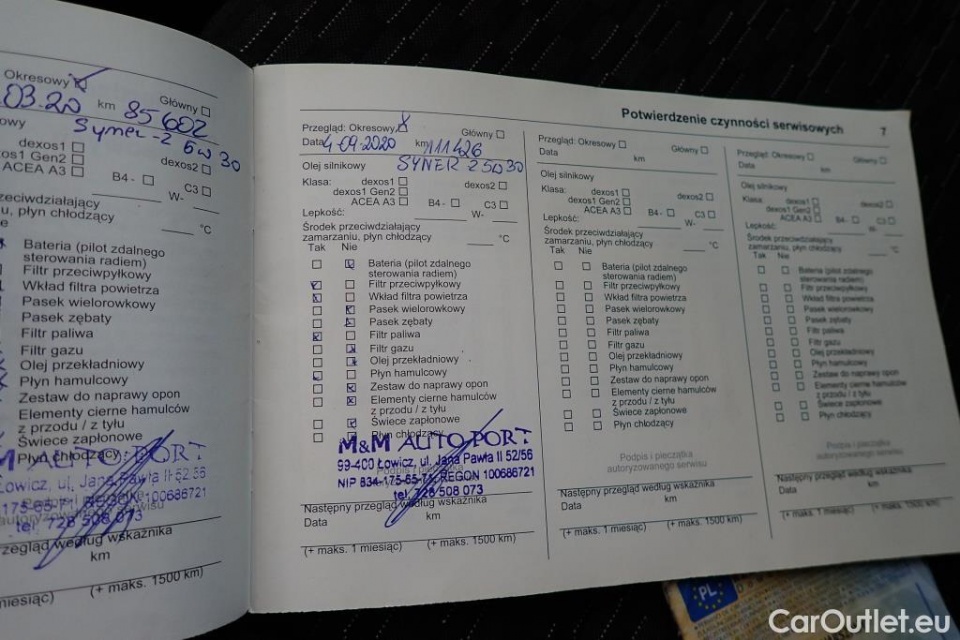 Okresowy
Główny
03-20 km 85 602
Syner-Z 5w30
dexos1
dexos2
xos1 Gen2
ACEA A3
B4 -
C3
W-
rzeciwdziałający
u, płyn chłodzący
°C
Bateria (pilot zdalnego
sterowania radiem)
Filtr przeciwpyłkowy
Wkład filtra powietrza
Pasek wielorowkowy
Pasek zębaty
Filtr paliwa
Filtr gazu
Olej przekładniowy
Płyn hamulcowy
Zestaw do naprawy opon
Elementy cierne hamulców
z przodu / z tyłu
Świece zapłonowe
Płyn chłodzący
M AUTO PORT
Łowicz, ul. Jana Pawła II 52/56
REGON 100686721
tel. 728 508 073
rzegląd według wskaźnika
km
miesiąc)
(+ maks. 1500 km)
Potwierdzenie czynności serwisowych 7
Przegląd: Okresowy
Główny
Data 4-09-2020 km 111426
Olej silnikowy SYNER Z 5W30
Klasa: dexos1
dexos2
dexos1 Gen2
ACEA A3
B4 -
C3
Lepkość:
W-
Środek przeciwdziałający
zamarzaniu, płyn chłodzący
°C
Tak Nie
Bateria (pilot zdalnego
sterowania radiem)
Filtr przeciwpyłkowy
Wkład filtra powietrza
Pasek wielorowkowy
Pasek zębaty
Filtr paliwa
Filtr gazu
Olej przekładniowy
Płyn hamulcowy
Zestaw do naprawy opon
Elementy cierne hamulców
z przodu / z tyłu
Świece zapłonowe
Płyn chłodzący
M&M AUTO PORT
99-400 Łowicz, ul. Jana Pawła II 52/56
NIP 834-175-65-71, REGON 100686721
tel. 728 508 073
Następny przegląd według wskaźnika
Data km
(+ maks. 1 miesiąc) (+ maks. 1500 km)
Przegląd: Okresowy
Główny
Data km
Olej silnikowy
Klasa: dexos1
dexos2
dexos1 Gen2
ACEA A3
B4 -
C3
Lepkość:
W-
Środek przeciwdziałający
zamarzaniu, płyn chłodzący
°C
Tak Nie
Bateria (pilot zdalnego
sterowania radiem)
Filtr przeciwpyłkowy
Wkład filtra powietrza
Pasek wielorowkowy
Pasek zębaty
Filtr paliwa
Filtr gazu
Olej przekładniowy
Płyn hamulcowy
Zestaw do naprawy opon
Elementy cierne hamulców
z przodu / z tyłu
Świece zapłonowe
Płyn chłodzący
Podpis i pieczątka
autoryzowanego serwisu
Następny przegląd według wskaźnika
Data km
(+ maks. 1 miesiąc) (+ maks. 1500 km)
Przegląd: Okresowy
Główny
Data km
Olej silnikowy
Klasa: dexos1
dexos2
dexos1 Gen2
ACEA A3
B4 -
C3
Lepkość:
W-
Środek przeciwdziałający
zamarzaniu, płyn chłodzący
°C
Tak Nie
Bateria (pilot zdalnego
sterowania radiem)
Filtr przeciwpyłkowy
Wkład filtra powietrza
Pasek wielorowkowy
Pasek zębaty
Filtr paliwa
Filtr gazu
Olej przekładniowy
Płyn hamulcowy
Zestaw do naprawy opon
Elementy cierne hamulców
z przodu / z tyłu
Świece zapłonowe
Płyn chłodzący
Podpis i pieczątka
autoryzowanego serwisu
Następny przegląd według wskaźnika
Data km
(+ maks. 1 miesiąc) (+ maks. 1500 km)
PL
CarOutlet.eu